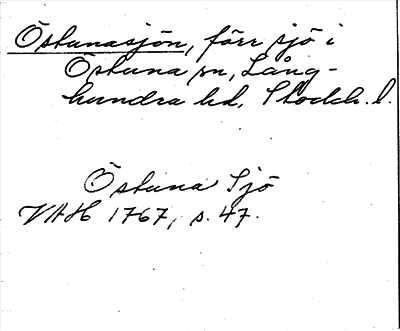 Östunasjön, förr sjö i
Östuna sn, Lång-
hundra hd, Stockh. l.
Östuna Sjö
VAH 1767, s. 47.